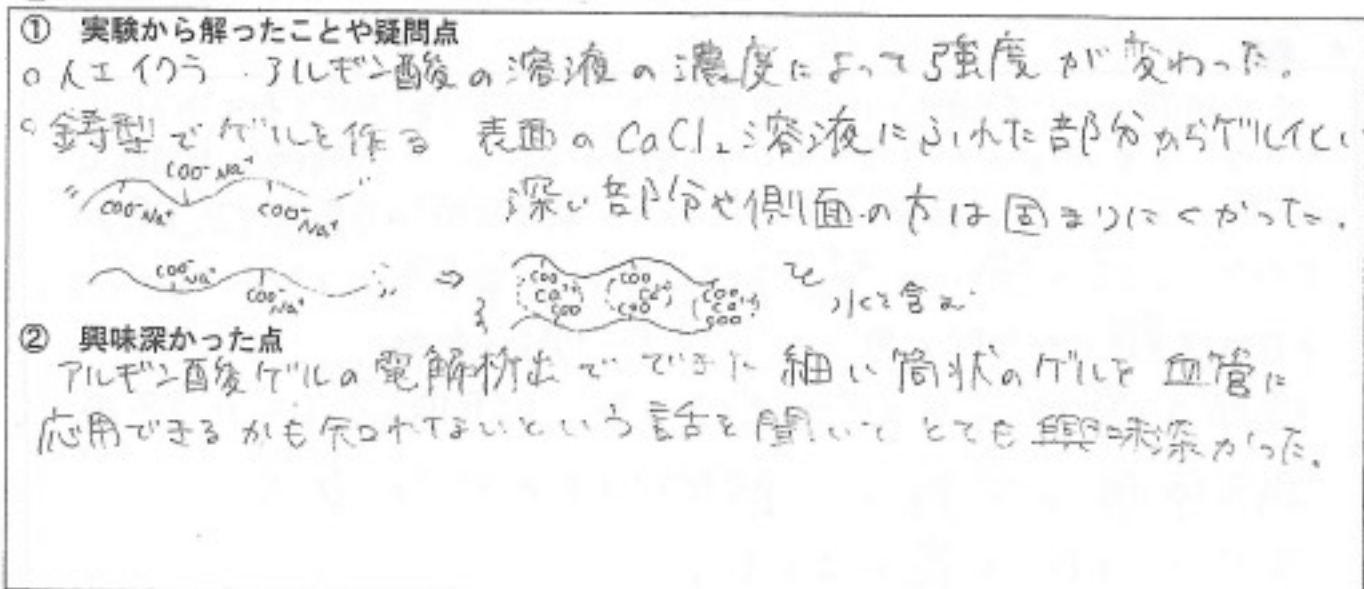 ① 実験から解ったことや疑問点
○人工イクラ アルギン酸の溶液の濃度によって強度が変わった。
○鋳型でゲルを作る 表面のCaCl₂溶液にふれた部分からゲル化し
COO⁻Na⁺
COO⁻Na⁺ COO⁻Na⁺
深い部分や側面の方は固まりにくかった。
COO⁻Na⁺ COO⁻Na⁺ ⇒ COO Ca²⁺ COO COO Ca²⁺ COO COO Ca²⁺ COO 水を含む
② 興味深かった点
アルギン酸ゲルの電解析出でできた細い筒状のゲルを血管に
応用できるかも知れないという話を聞いてとても興味深かった。